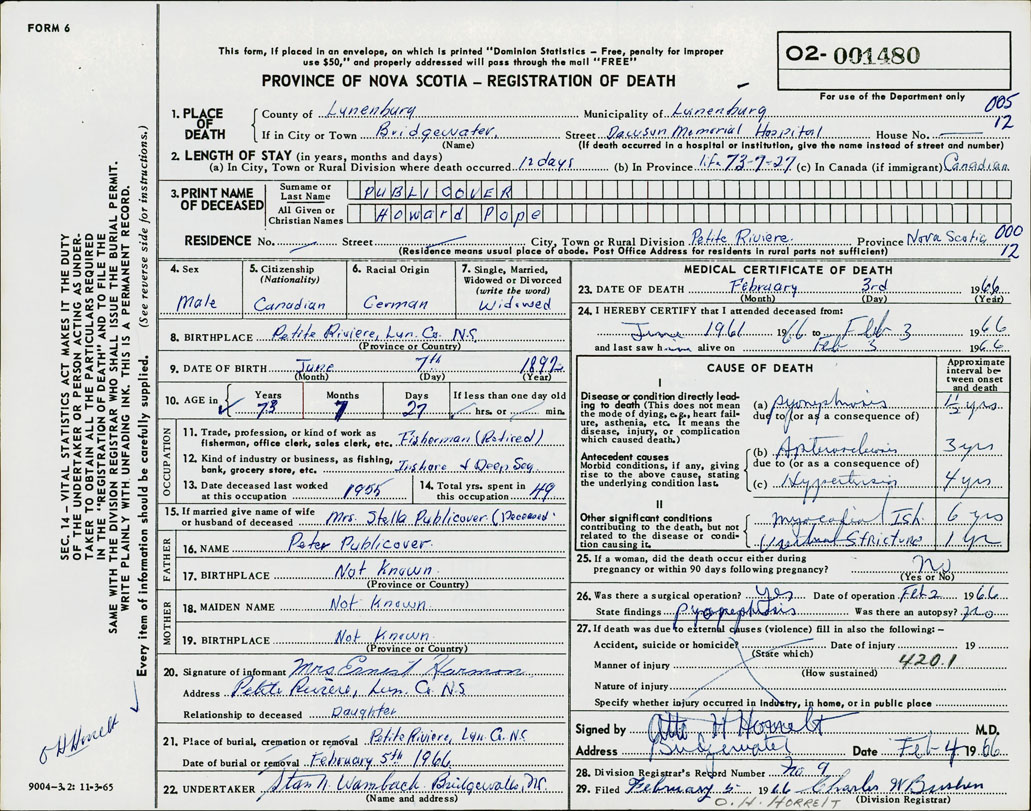 FORM 6
This form, if placed in an envelope, on which is printed "Dominion Statistics – Free, penalty for improper
use $50," and properly addressed will pass through the mail "FREE"
PROVINCE OF NOVA SCOTIA – REGISTRATION OF DEATH
O2- 001480
For use of the Department only
005
12
1. PLACE OF DEATH County of Lunenburg Municipality of Lunenburg
If in City or Town Bridgewater Street Dawson Memorial Hospital House No.
(Name) (If death occurred in a hospital or institution, give the name instead of street and number)
2. LENGTH OF STAY (in years, months and days)
(a) In City, Town or Rural Division where death occurred 12 days (b) In Province life 73-7-27 (c) In Canada (if immigrant) Canadian
3. PRINT NAME OF DECEASED Surname or Last Name PUBLICOVER
All Given or Christian Names Howard Pope
RESIDENCE No. Street City, Town or Rural Division Petite Riviere Province Nova Scotia 000
(Residence means usual place of abode. Post Office Address for residents in rural parts not sufficient) 12
4. Sex Male
5. Citizenship (Nationality) Canadian
6. Racial Origin German
7. Single, Married, Widowed or Divorced (write the word) Widowed
8. BIRTHPLACE Petite Riviere, Lun. Co. N.S.
(Province or Country)
9. DATE OF BIRTH June 7th 1892
(Month) (Day) (Year)
10. AGE in Years Months Days If less than one day old
73 7 27 hrs. or min.
OCCUPATION
11. Trade, profession, or kind of work as
fisherman, office clerk, sales clerk, etc. Fisherman (Retired)
12. Kind of industry or business, as fishing,
bank, grocery store, etc. Inshore & Deep Sea
13. Date deceased last worked
at this occupation 1955
14. Total yrs. spent in
this occupation 49
15. If married give name of wife
or husband of deceased Mrs. Stella Publicover (Deceased)
FATHER
16. NAME Peter Publicover
17. BIRTHPLACE Not Known
(Province or Country)
MOTHER
18. MAIDEN NAME Not Known
19. BIRTHPLACE Not Known
(Province or Country)
20. Signature of informant Mrs Ernest Harmon
Address Petite Riviere, Lun. Co. N.S
Relationship to deceased Daughter
21. Place of burial, cremation or removal Petite Riviere, Lun. Co. N.S
Date of burial or removal February 5th 1966
22. UNDERTAKER Stan N. Wambach Bridgewater, N.S.
(Name and address)
MEDICAL CERTIFICATE OF DEATH
23. DATE OF DEATH February 3rd 1966
(Month) (Day) (Year)
24. I HEREBY CERTIFY that I attended deceased from:
June 1961 1966 to Feb 3 1966
and last saw him alive on Feb 3 1966
CAUSE OF DEATH
Approximate interval between onset and death
I
Disease or condition directly leading
to death (This does not mean
the mode of dying, e.g., heart failure,
asthenia, etc. It means the
disease, injury, or complication
which caused death.)
(a) pyonephrosis 1½ yrs.
due to (or as a consequence of)
Antecedent causes
Morbid conditions, if any, giving
rise to the above cause, stating
the underlying condition last.
(b) Arteriosclerosis 3 yrs
due to (or as a consequence of)
(c) Hypertension 4 yrs
II
Other significant conditions
contributing to the death, but not
related to the disease or condition
causing it.
myocardial Ish. 6 yrs
Urethral Stricture 1 yr
25. If a woman, did the death occur either during
pregnancy or within 90 days following pregnancy? No
(Yes or No)
26. Was there a surgical operation? Yes Date of operation Feb 2 1966
State findings pyonephrosis Was there an autopsy? no
27. If death was due to external causes (violence) fill in also the following: –
Accident, suicide or homicide Date of injury 19
(State which)
Manner of injury 420.1
(How sustained)
Nature of injury
Specify whether injury occurred in industry, in home, or in public place
Signed by Otto H Horrelt M.D.
Address Bridgewater Date Feb 4 1966
28. Division Registrar's Record Number No 9
29. Filed February 5 1966 Charles W
O. H. HORRELT (Division Registrar)
SEC. 14 – VITAL STATISTICS ACT MAKES IT THE DUTY
OF THE UNDERTAKER OR PERSON ACTING AS UNDERTAKER
TO OBTAIN ALL THE PARTICULARS REQUIRED
IN THE "REGISTRATION OF DEATH" AND TO FILE THE
SAME WITH THE DIVISION REGISTRAR WHO SHALL ISSUE THE BURIAL PERMIT.
WRITE PLAINLY WITH UNFADING INK. THIS IS A PERMANENT RECORD.
Every item of information should be carefully supplied. (See reverse side for instructions.)
O H Horrelt
9004-3.2: 11-3-65